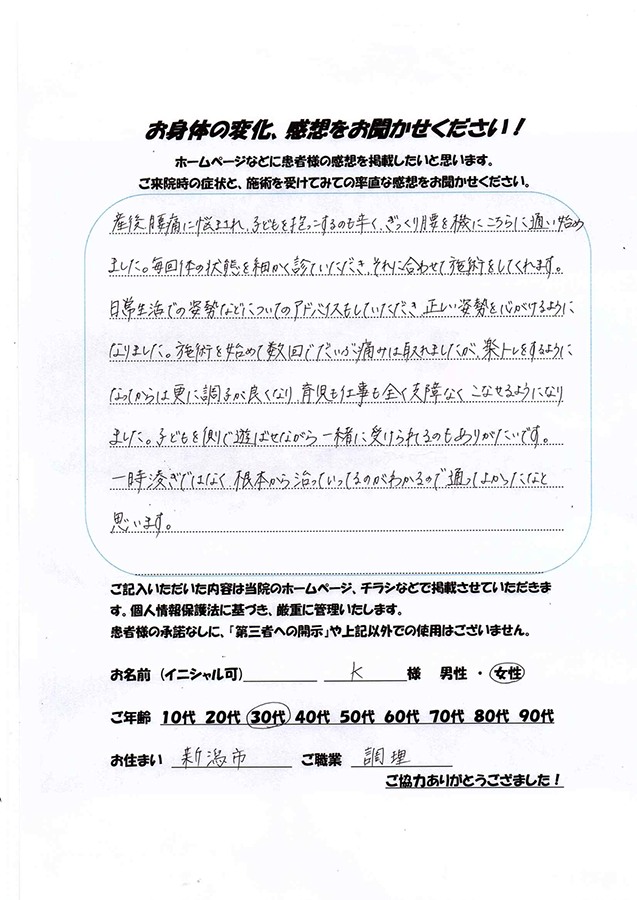 お身体の変化、感想をお聞かせください！
ホームページなどに患者様の感想を掲載したいと思います。
ご来院時の症状と、施術を受けてみての率直な感想をお聞かせください。
産後腰痛に悩まされ、子どもを抱っこするのも辛く、ぎっくり腰を機にこちらに通い始め
ました。毎回体の状態を細かく診ていただき、それに合わせて施術をしてくれます。
日常生活での姿勢などについてのアドバイスもしていただき、正しい姿勢を心がけるように
なりました。施術を始めて数回でだいぶ痛みは取れましたが、楽トレをするように
なってからは更に調子が良くなり、育児も仕事も全く支障なくこなせるようになり
ました。子どもを側で遊ばせながら一緒に受けられるのもありがたいです。
一時凌ぎではなく、根本から治っていってるのがわかるので通ってよかったなと
思います。
ご記入いただいた内容は当院のホームページ、チラシなどで掲載させていただきま
す。個人情報保護法に基づき、厳重に管理いたします。
患者様の承諾なしに、「第三者への開示」や上記以外での使用はございません。
お名前（イニシャル可） K 様 男性 ・ 女性
ご年齢 10代 20代 30代 40代 50代 60代 70代 80代 90代
お住まい 新潟市 ご職業 調理
ご協力ありがとうござました！